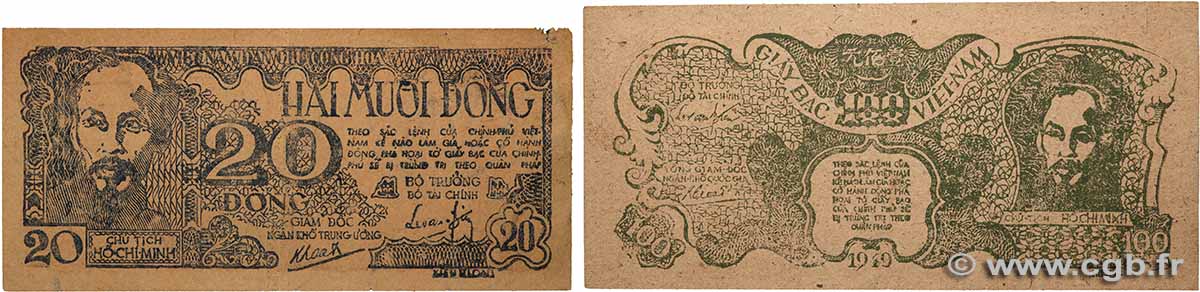 VIỆT-NAM DÂN CHỦ CỘNG HÒA
HAI MƯƠI ĐỒNG
20
THEO SẮC LỆNH CỦA CHÍNH-PHỦ VIỆT-
NAM KẺ NÀO LÀM GIẢ HOẶC CÓ HÀNH
ĐỘNG PHÁ HOẠI TỜ GIẤY BẠC CỦA CHÍNH-
PHỦ SẼ BỊ TRỪNG TRỊ THEO QUÂN PHÁP
ĐỒNG
BỘ TRƯỞNG
BỘ TÀI CHÍNH
GIÁM ĐỐC
NGÂN KHỐ TRUNG ƯƠNG
20
CHỦ TỊCH
HỒ-CHÍ-MINH
20
GIẤY BẠC
VIỆT-NAM
100
BỘ TRƯỞNG
BỘ TÀI CHÍNH
TỔNG GIÁM ĐỐC
NGÂN-KHỐ QUỐC GIA
THEO SẮC LỆNH CỦA
CHÍNH PHỦ VIỆT-NAM
KẺ NÀO LÀM GIẢ HOẶC
CÓ HÀNH ĐỘNG PHÁ
HOẠI TỜ GIẤY BẠC
CỦA CHÍNH PHỦ SẼ
BỊ TRỪNG TRỊ THEO
QUÂN PHÁP
CHỦ-TỊCH HỒ-CHÍ-MINH
100
1949
100
© www.cgb.fr